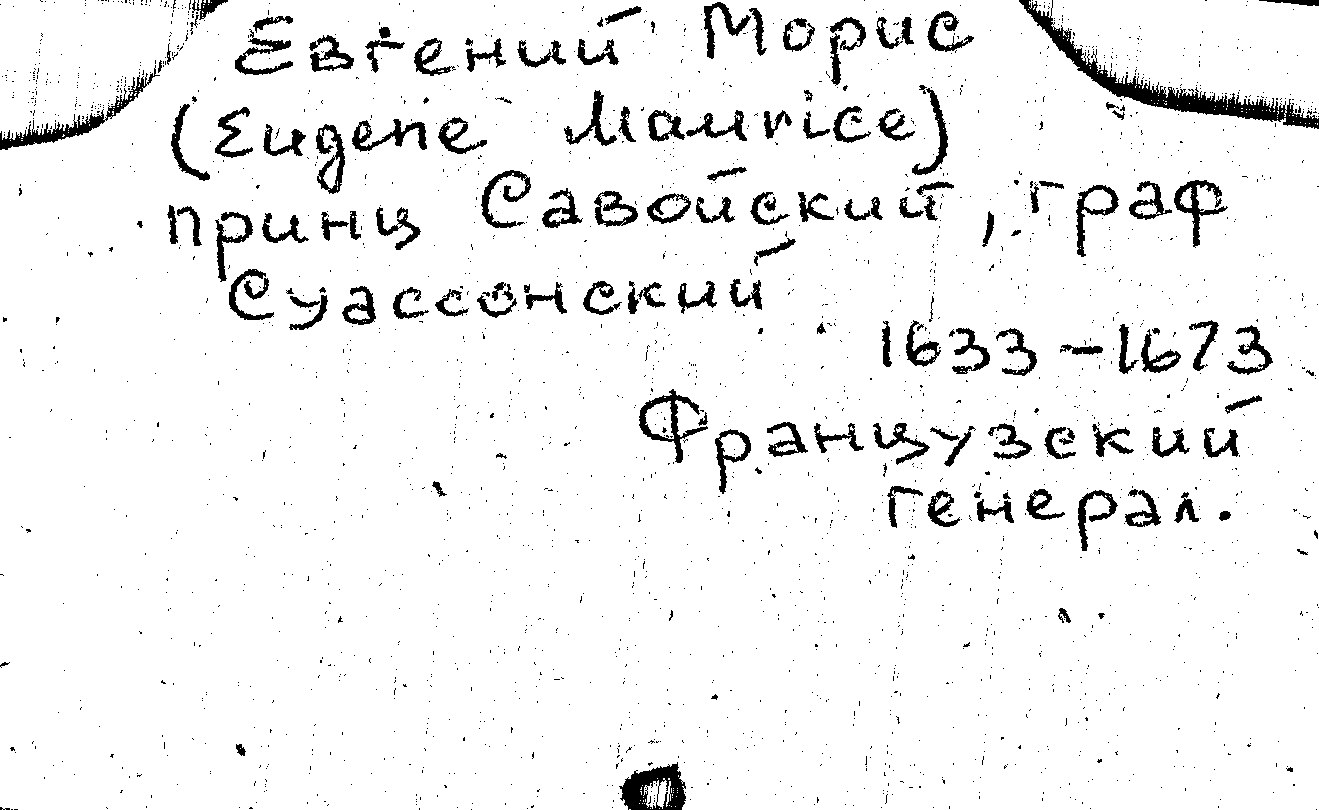 Евгений Морис
(Eugene Maurice)
принц Савойский, граф
Суассонский
1633-1673
Французский
генерал.